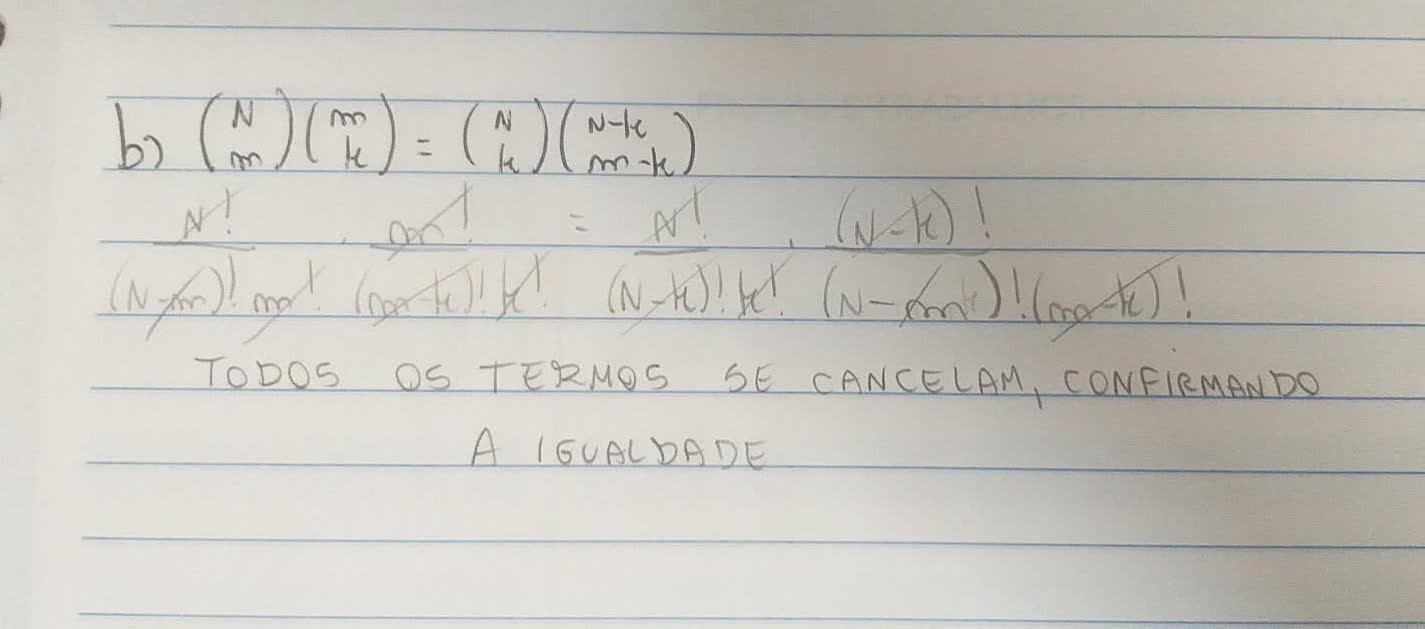 b) (N m)(m k) = (N k)(N-k m-k)
N! . m! = N! . (N-k)!
(N-m)! m! (m-k)! k! (N-k)! k! (N-m)! (m-k)!
TODOS OS TERMOS SE CANCELAM, CONFIRMANDO
A IGUALDADE